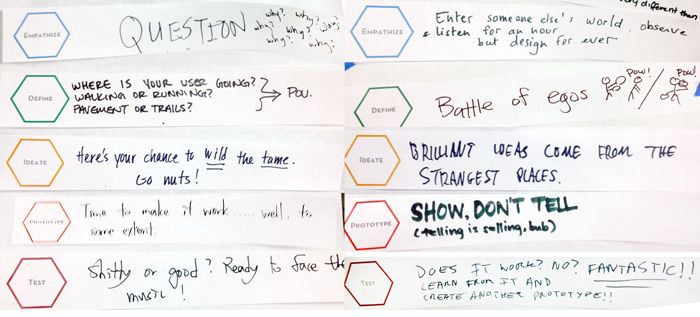 EMPATHIZE
QUESTION why? why? why? why? why? why? why? why?
DEFINE
WHERE IS YOUR USER GOING?
WALKING OR RUNNING?
PAVEMENT OR TRAILS?
POV.
IDEATE
Here's your chance to wild the tame.
Go nuts!
PROTOTYPE
Time to make it work..... well, to
some extent.
TEST
Shitty or good? Ready to face the
music!
very different than
EMPATHIZE
Enter someone else's world, observe
& listen for an hour
but design for ever
DEFINE
Battle of egos
POW!
POW!
IDEATE
BRILLIANT IDEAS COME FROM THE
STRANGEST PLACES.
PROTOTYPE
SHOW, DON'T TELL
(telling is selling, bub)
TEST
DOES IT WORK? NO? FANTASTIC!!
LEARN FROM IT AND
CREATE ANOTHER PROTOTYPE!!